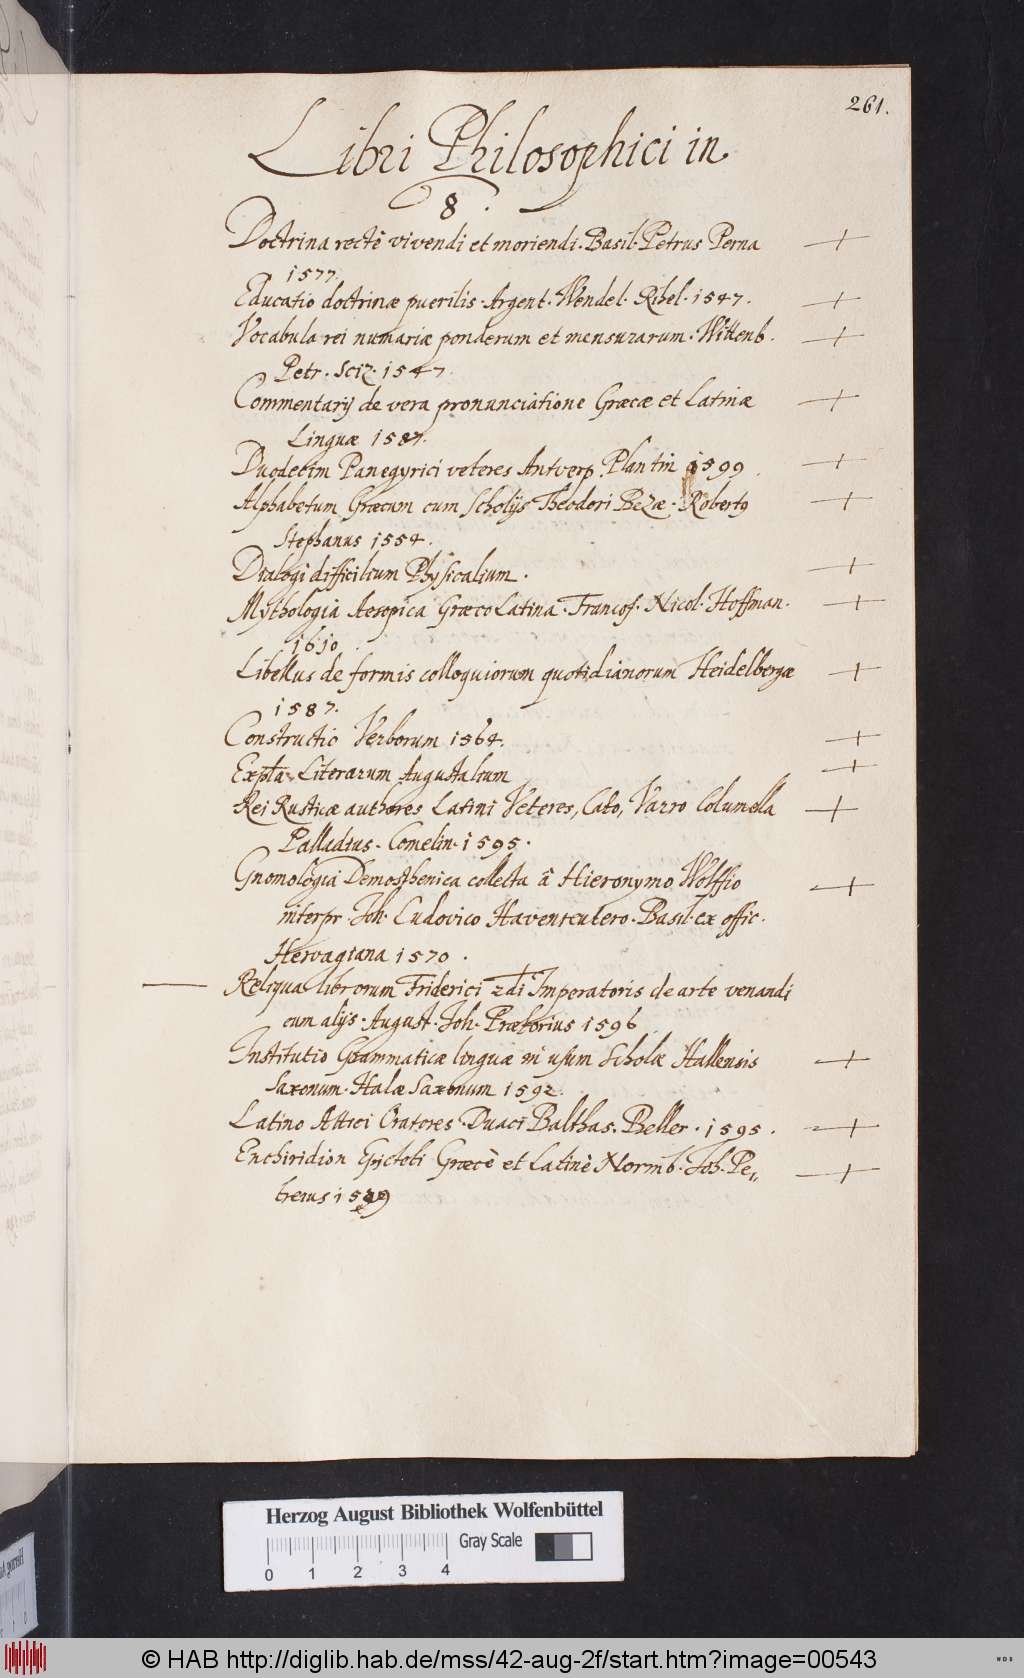 261.
Libri Philosophici in
8.
Doctrina rectè vivendi et moriendi. Basil. Petrus Perna
1577.
Educatio doctrinæ puerilis. Argent. Wendel. Rihel. 1547.
Vocabula rei numariæ ponderum et mensurarum. Wittenb.
Petr. Seiz. 1547.
Commentarij de vera pronunciatione Græcæ et Latinæ
Linguæ 1587.
Duodecim Panegyrici veteres Antverp. Plantin 1599.
Alphabetum Græcum cum Scholijs Theodori Bezæ. Robertꝰ
Stephanus 1554.
Dialogi difficilium Physicalium.
Mythologia Aesopica GræcoLatina. Francof. Nicol. Hoffman.
1610.
Libellus de formis colloquiorum quotidianorum Heidelbergæ
1587.
Constructio Verborum 1564.
Literarum Augustalium
Rei Rusticæ authores Latini Veteres, Cato, Varro Columella
Palladius. Comelin. 1595.
Gnomologia Demosthenica collecta â Hieronymo Wolffio
interpr. Joh. Ludovico Havenreutero. Basil. ex offic.
Hervagiana 1570.
Reliqua librorum Friderici 2di Imperatoris de arte venandi
cum alijs. August. Joh. Prætorius 1596
Institutio Grammaticæ linguæ in usum Scholæ Hallensis
Saxonum. Halæ Saxonum 1592.
Latino Attici Oratores. Duaci Balthas. Beller. 1595.
Enchiridion Epicteti Græcè et Latinè Normb. Joh. Pe„
treius
Herzog August Bibliothek Wolfenbüttel
Gray Scale
0 1 2 3 4
© HAB http://diglib.hab.de/mss/42-aug-2f/start.htm?image=00543